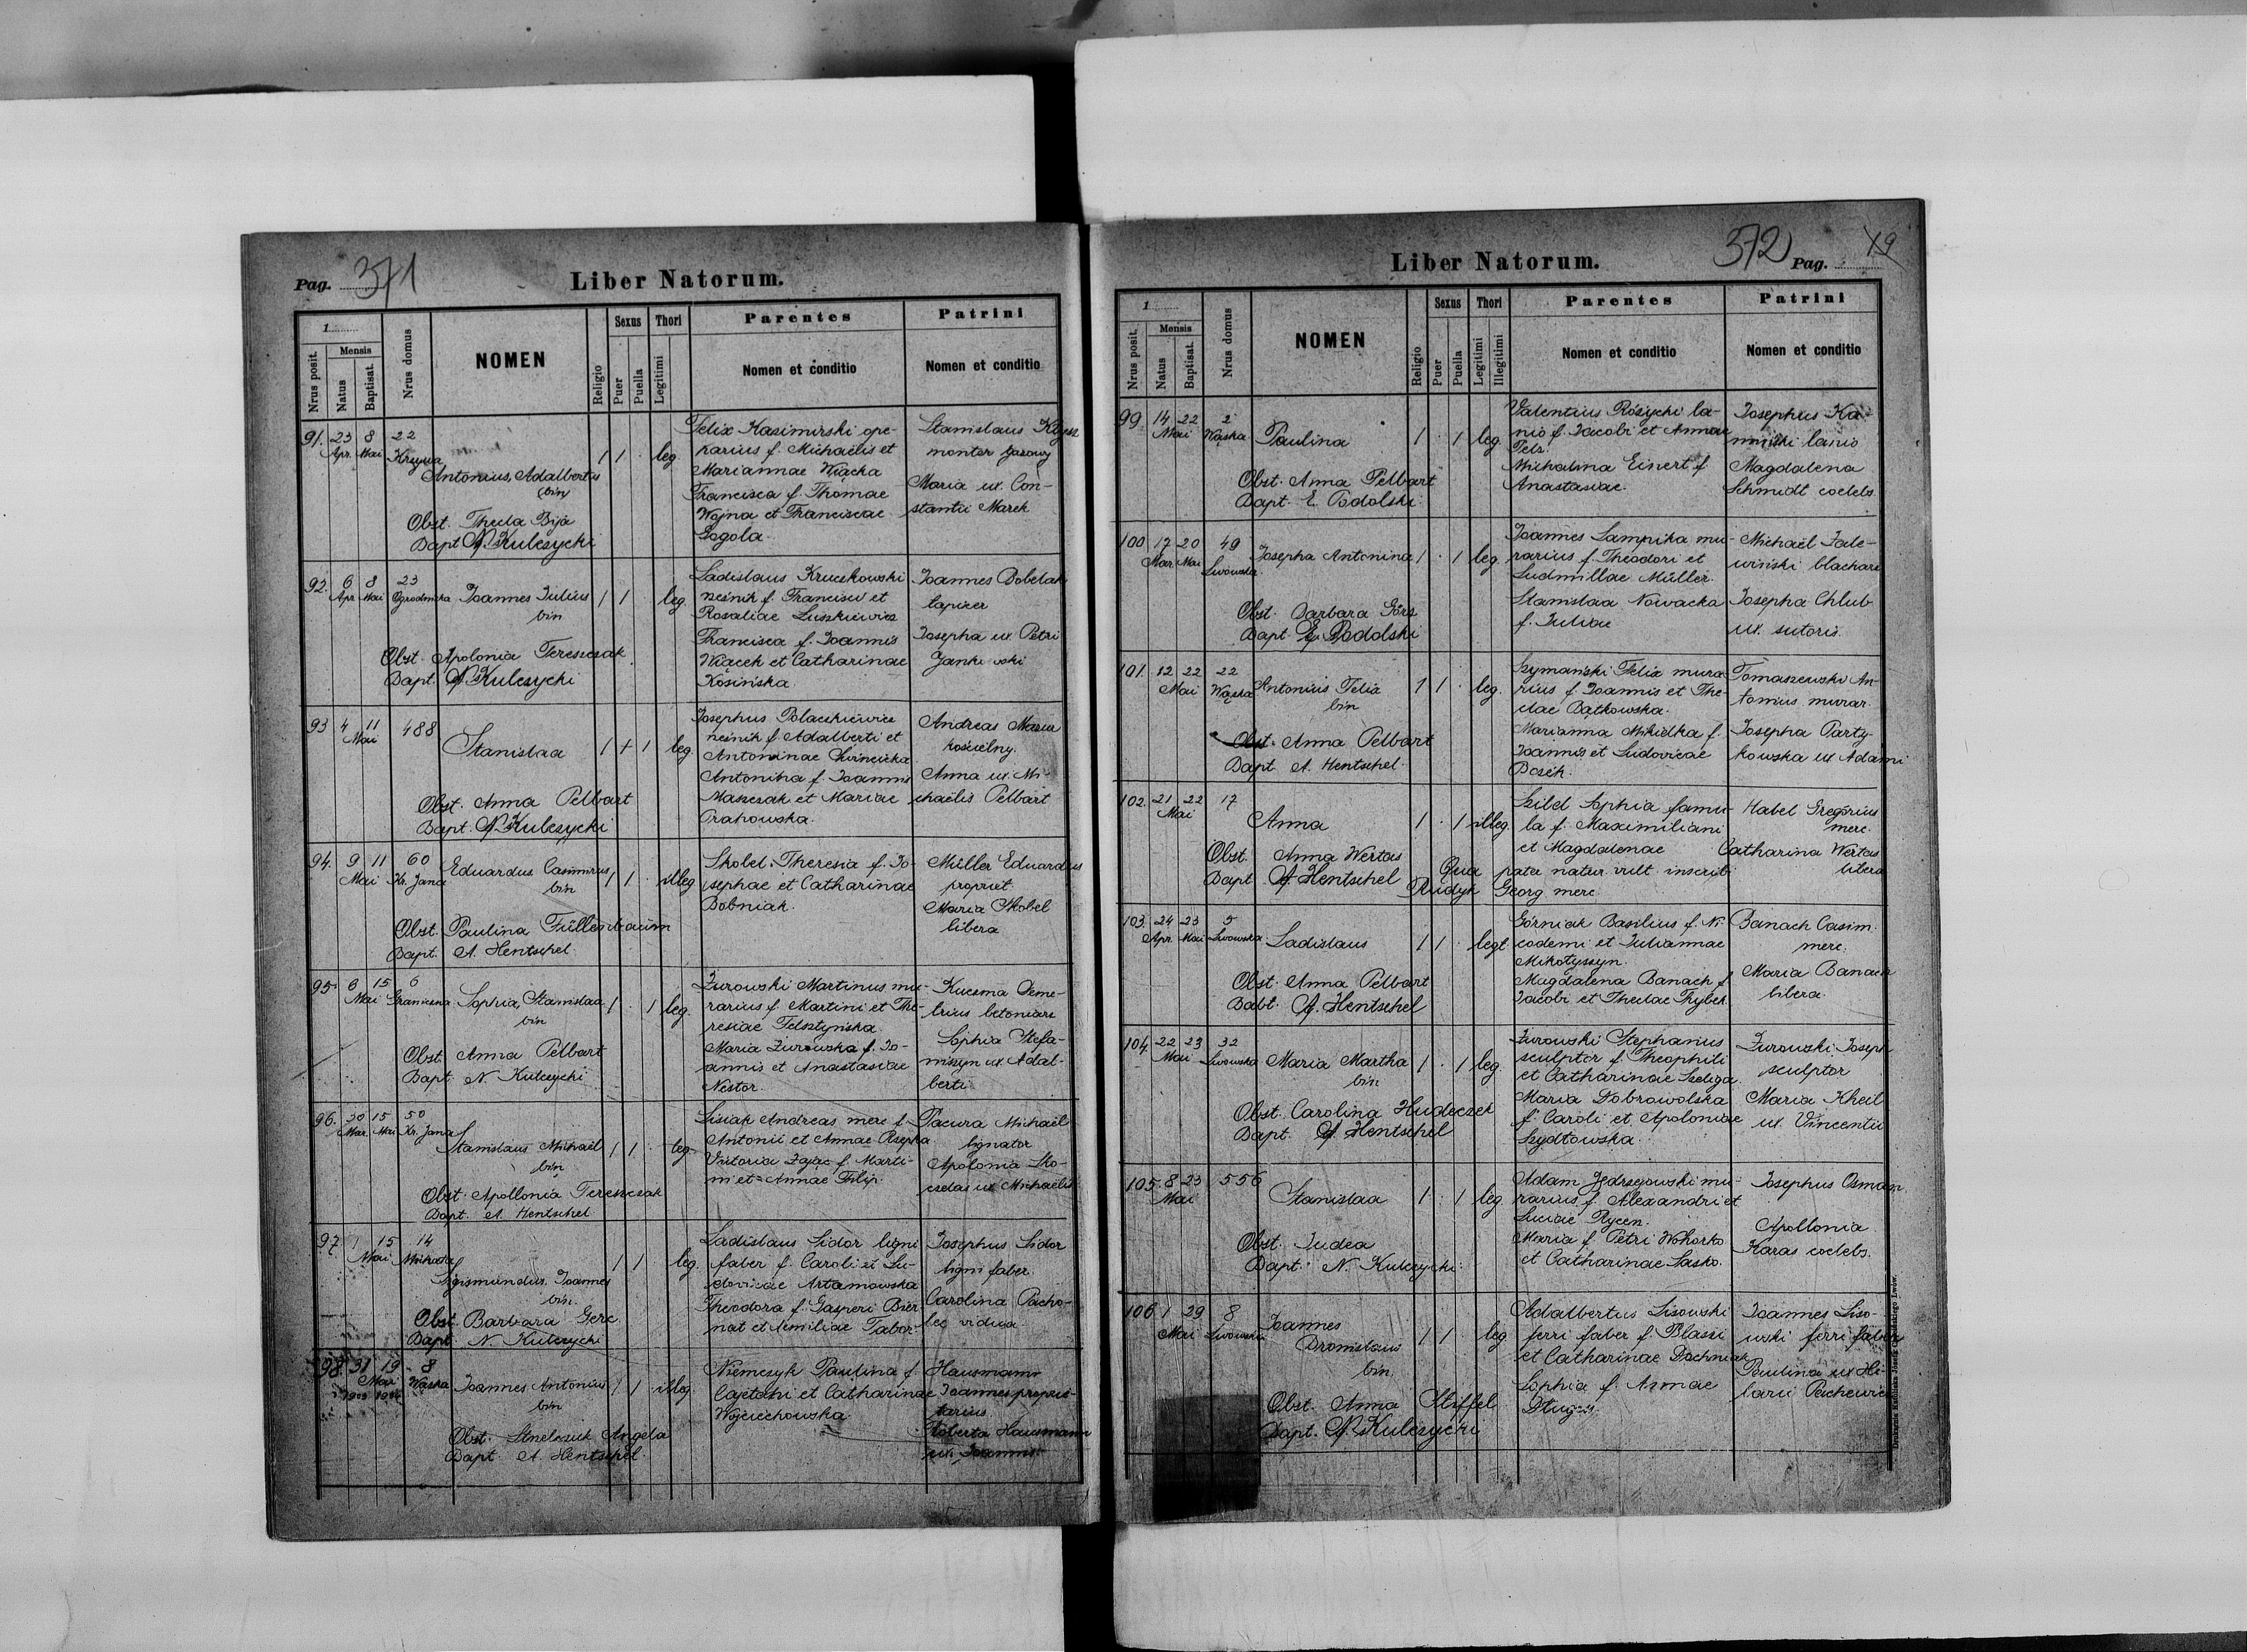 Pag. 371
Liber Natorum.
1
Nrus posit.
Mensis
Natus
Baptisat.
Nrus domus
NOMEN
Religio
Sexus
Puer
Puella
Thori
Legitimi
Parentes
Nomen et conditio
Patrini
Nomen et conditio
91. 23 8 22
Apr. Mai Krzywa
Antonius, Adalbertus
bin
1 1 . leg
Obst. Thecla Bija
Bapt N. Kulczycki
Felix Kazimirski ope-
rarius f. Michaëlis et
Mariannae Wiącka
Francisca f. Thomae
Wojna et Franciscae
Gogola.
Stanislaus
monter gazowy
Maria ux. Con-
stantii Marek
92. 6 8 23
Apr Mai Ogrodnicka Joannes Julius 1 1 . leg.
bin
Obst. Apolonia Tereszczak
Bapt. N. Kulczycki
Ladislaus Kruczkowski
rześnik f. Francisci et
Rosaliae Luszkiewicz
Francisca f. Joannis
Wiącek et Catharinae
Kosińska.
Joannes Bobelak
tapicer
Josepha ux. Petri
Jankowski
93 4 11 488
Mai
Stanislaa 1 + 1 leg
Obst. Anna Pelbart
Bapt. N. Kulczycki
Josephus Polaczkiewicz
rześnik f. Adalberti et
Antoninae
Antonina f. Joannis
Maszczak et Mariae
Prahowska.
Andreas Mazur
kościelny.
Anna ux. Mi-
chaëlis Pelbart
94. 9 11 60
Mai Kr. Jana
Eduardus Casimirus 1 1 . illeg
bin
Obst. Paulina Füllenbaum
Bapt. A. Hentschel
Skobel Theresia f. Jo-
sephae et Catharinae
Bobniak.
Müller Eduardus
propriet
Maria Skobel
libera
95 6 15 6
Mai Graniczna Sophia Stanislaa 1 . 1 leg.
bin
Obst. Anna Pelbart
Bapt N. Kulczycki
Żurowski Martinus mu-
rarius f. Martini et The-
resiae Felsztyńska.
Maria Żurowska f. Jo-
annis et Anastasiae
Nestor.
Kuczma Deme-
trius betoniarz
Sophia Stefa-
niszyn ux. Adal-
berti
96. 30 15 50
Mar. Mai Kr. Jana
Stanislaus Michaël 1 1 . leg
bin
Obst. Apollonia Tereszczak
Bapt. A. Hentschel
Lisiak Andreas merc f.
Antonii et Annae Rzepka
Victoria Zając f. Marti-
ni et Annae Filip.
Pacura Michaël
lignator
Apolonia Sko-
czdas ux Michaëlis
97 1 15 14
Mai Mickiewi
Sigismundus Joannes
bin.
1 1 . leg.
Obst. Barbara Gerc
Bapt. N. Kulczycki
Ladislaus Sidor ligni
faber f. Caroli et Lu-
dovicae Artamowska
Theodora f. Gasperi Bier-
nat et Aemiliae Tabor
Josephus Sidor
ligni faber.
Carolina Pacho-
lec vidua.
98. 31 19 8
Mai Wąska Joannes Antonius 1 1 illeg.
bin
Obst. Strelczuk Angela
Bapt A. Hentschel
Niemczyk Paulina f.
Cajetani et Catharinae
Wojciechowska.
Hausmann
Joannes proprie-
tarius.
Roberta Hausmann
ux. Joannis
Liber Natorum.
372 Pag. 19
1
Nrus posit.
Mensis
Natus
Baptisat.
Nrus domus
NOMEN
Religio
Sexus
Puer
Puella
Thori
Legitimi
Illegitimi
Parentes
Nomen et conditio
Patrini
Nomen et conditio
99 14 22 2
Mai Wąska Paulina 1 . 1 leg
Obst. Anna Pelbart
Bapt. E. Podolski.
Valentius Różycki la-
nio f. Jacobi et Annae
Pelz.
Michalina Einert f.
Anastasiae.
Josephus Ka-
miński lanio
Magdalena
Schmidt coelebs.
100 17 20 49
Mar. Mai Lwowska Josepha Antonina 1 . 1 leg
Obst. Barbara Görz
Bapt E. Podolski
Joannes Lampika mu-
rarius f. Theodori et
Ludmillae Müller.
Stanislaa Nowacka
f. Juliae
Michaël Zale-
wiński blacharz
Josepha Chlub
ux. sutoris.
101. 12 22 22
Mai Wąska Antonius Felix 1 1 . leg.
bin
Obst. Anna Pelbart
Bapt A. Hentschel.
Szymański Felix mura
rius f. Joannis et The-
clae Bątkowska.
Marianna Mikidka f.
Joannis et Ludovicae
Bosek.
Tomaszewski An-
tonius murar.
Josepha Party-
kowska ux Adami
102. 21 22 17
Mai Anna 1 . 1 illeg.
Obst. Anna Wertas
Bapt A. Hentschel
Szild Sophia famu-
la f. Maximiliani
et Magdalenae
Qua pater natur. vult inscribi
Rudyk Georg merc.
Habel Gregorius
merc.
Catharina Wertas
libera
103. 24 23 5
Apr. Mai Lwowska Ladislaus 1 1 . legt
Obst. Anna Pelbart
Babt. A. Hentschel
Górniak Basilius f. Ni-
codemi et Juliannae
Mikołyszyn.
Magdalena Banach f.
Jacobi et Theclae Thyber.
Banach Casim.
merc.
Maria Banach
libera.
104. 22 23 32
Mai Lwowska Maria Martha 1 . 1 leg.
bin
Obst. Carolina Hudeczek
Bapt. A. Hentschel
Żurowski Stephanus
sculptor f. Theophili
et Catharinae Szeliga.
Maria Dobrowolska
f. Caroli et Apoloniae
Szydłowska.
Żurowski Joseph
sculptor
Maria Kheil
ux. Vincentii
105. 8 23 556
Mai Stanislaa 1 . 1 leg.
Obst. Judea
Bapt. N. Kulczycki.
Adam Jędrzejowski mu-
rarius f. Alexandri et
Luciae Rycen.
Maria f. Petri Wohorko
et Catharinae Sasko.
Josephus Osmago
Apollonia
Karas coelebs.
106 1 29 8
Mai Lwowska Joannes
Bronislaus
bin
1 1 . leg
Obst. Anna Stiffel
Bapt. N. Kulczycki
Adalbertus Lisowski
ferri faber f. Blasii
et Catharinae Pachniak
Sophia f. Annae
Joannes Liso-
wski ferri faber
Paulina ux Hi-
larii Pachewicz